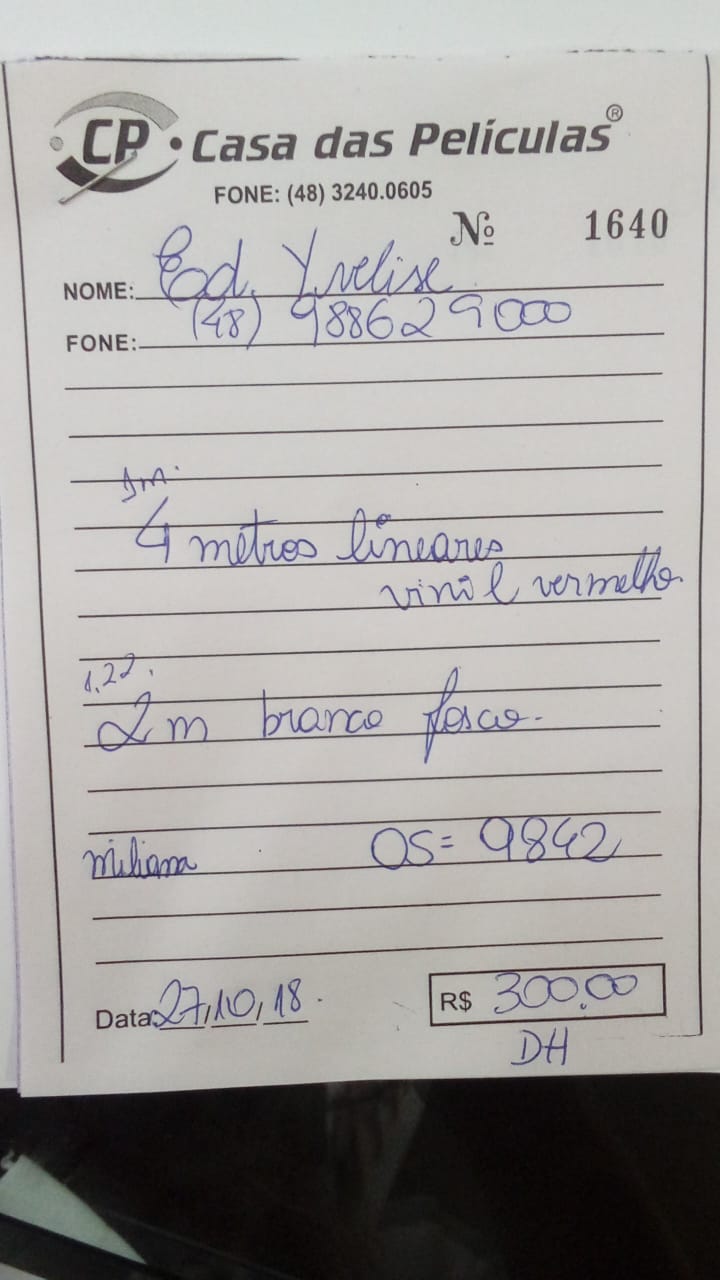 CP • Casa das Películas®
FONE: (48) 3240.0605
Nº 1640
NOME: Ed. Yvelise
FONE: (48) 988629000
1m.
4 metros lineares
vinil vermelho.
1,22.
2m branco fosco.
OS= 9842
Data: 27,10,18.
R$ 300,00
DH